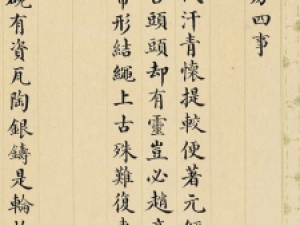 四事
汗青懷提較便著元
頭頭却有靈豈必趙
形結繩上古殊難復
有資瓦陶銀鑄是輪